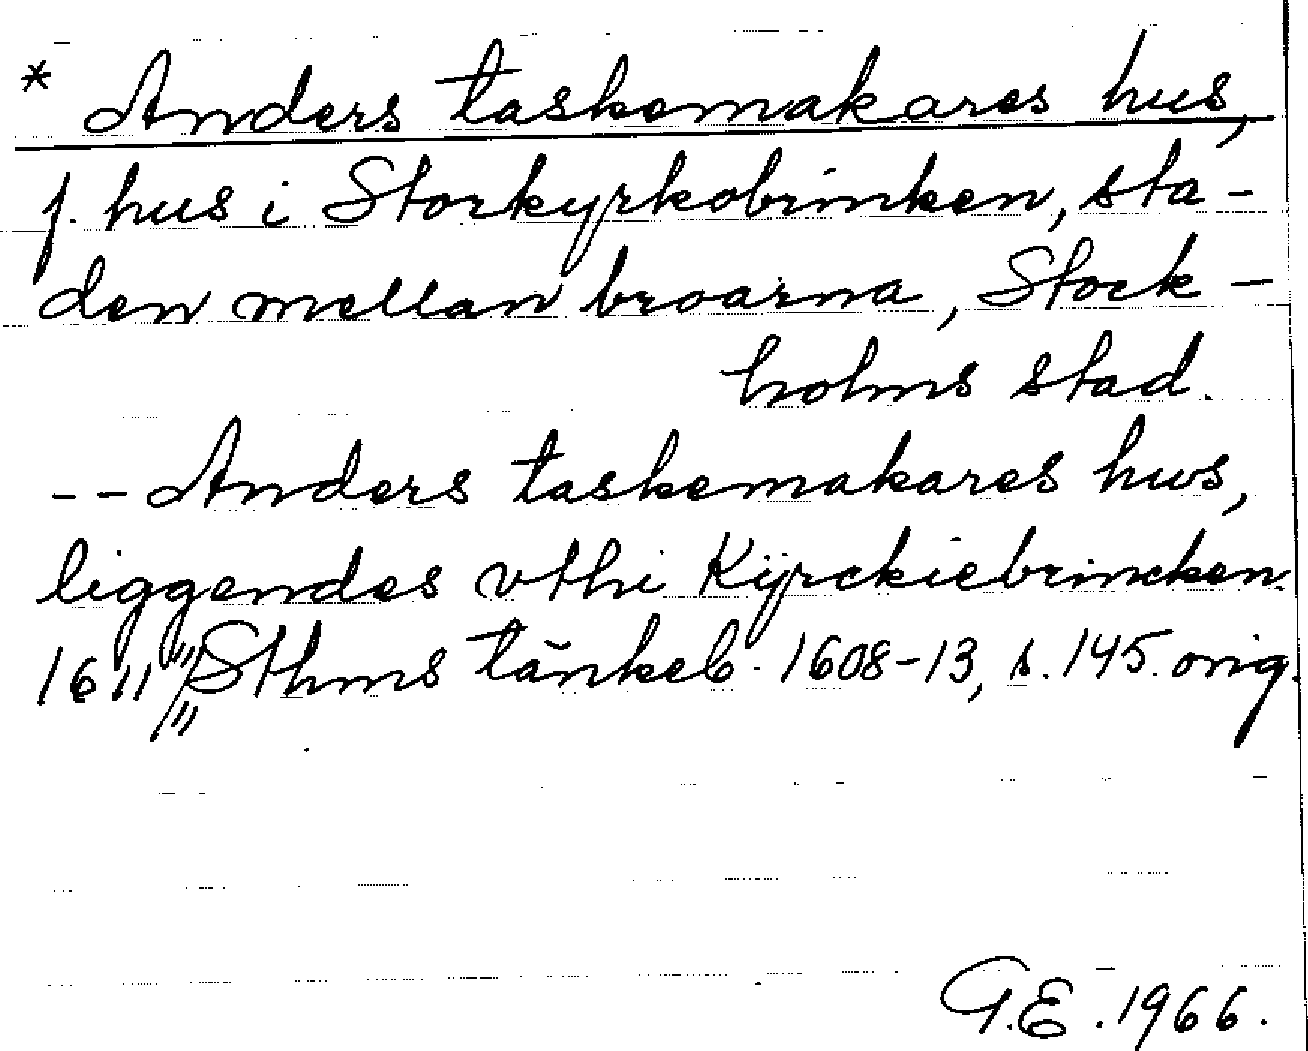 * Anders taskemakares hus,
f. hus i Storkyrkobrinken, sta-
den mellan broarna, Stock-
holms stad.
-- Anders taskemakares hws,
liggendes vthi Kÿrckiebrincken.
1611 Sthms tänkeb. 1608-13, s. 145. orig.
G.E. 1966.